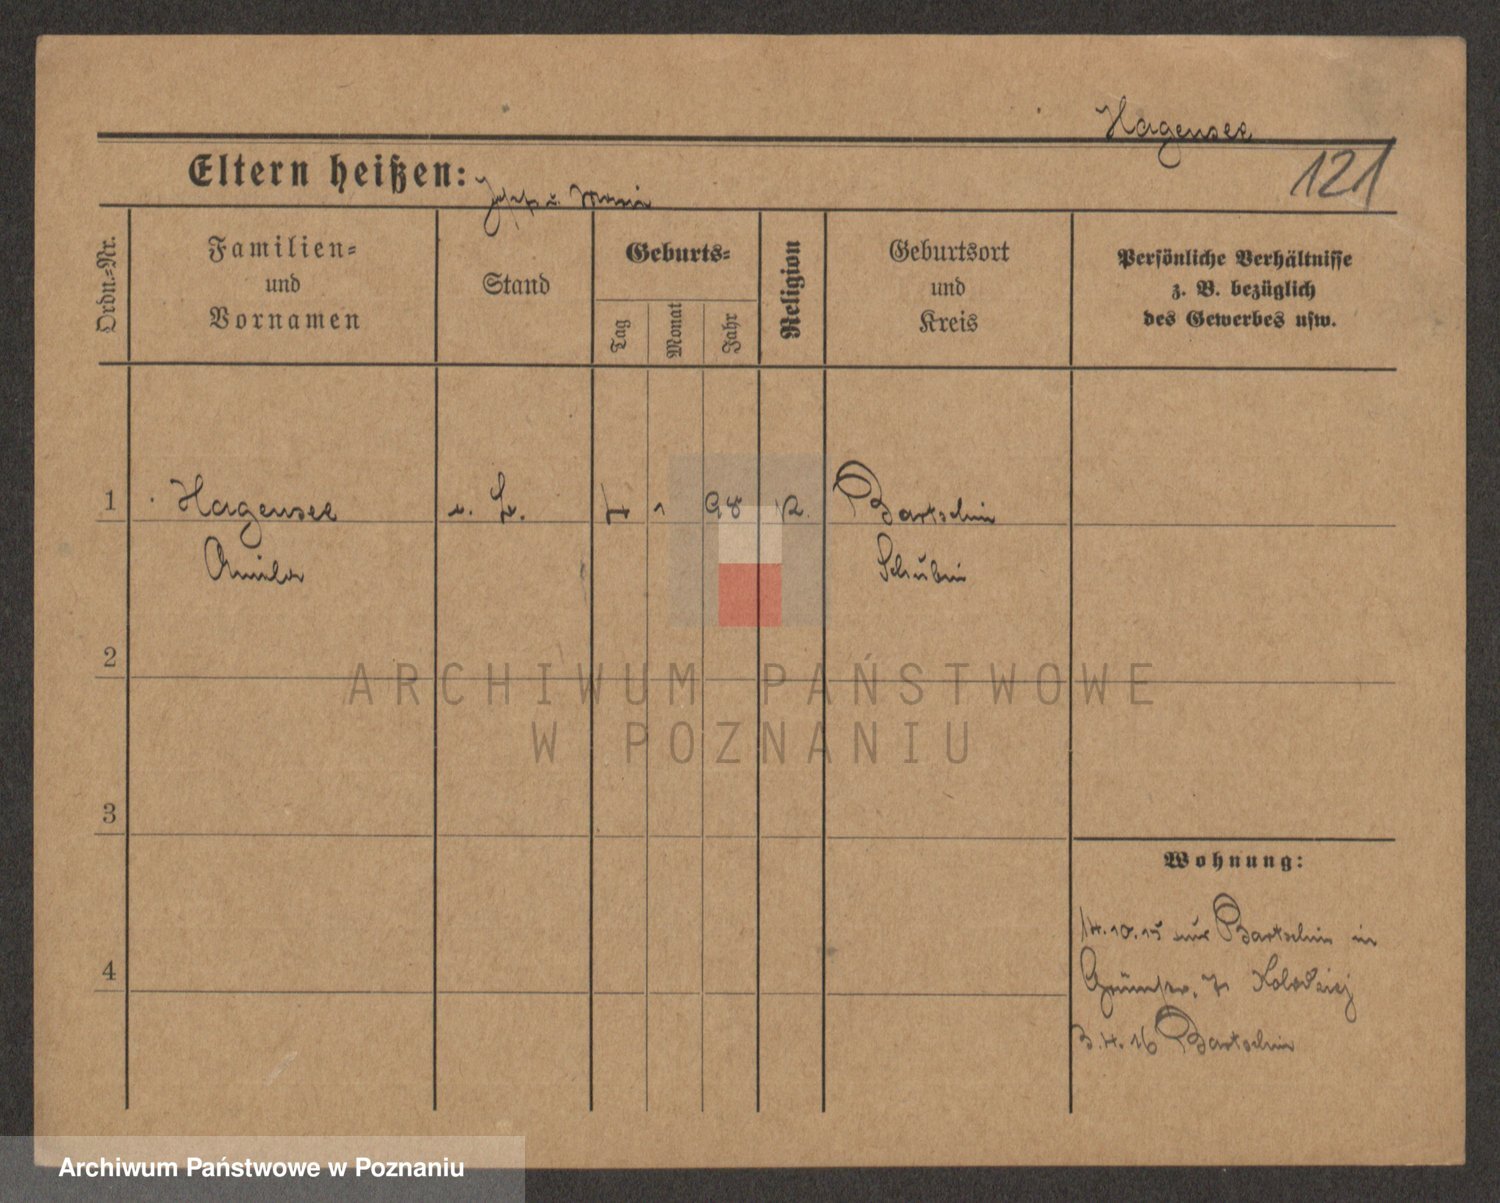 Hagensee
121
Eltern heißen: Josef u. Maria
Ordn.=Nr.
Familien=
und
Vornamen
Stand
Geburts=
Tag
Monat
Jahr
Religion
Geburtsort
und
Kreis
Persönliche Verhältnisse
z. B. bezüglich
des Gewerbes usw.
1 Hagensee 98 Bartschin
Schubin
2
3
4
Wohnung:
14.10.15 aus Bartschin in
Grünstr. Kolodziej
3.4.16 Bartschin
ARCHIWUM PAŃSTWOWE
W POZNANIU
Archiwum Państwowe w Poznaniu